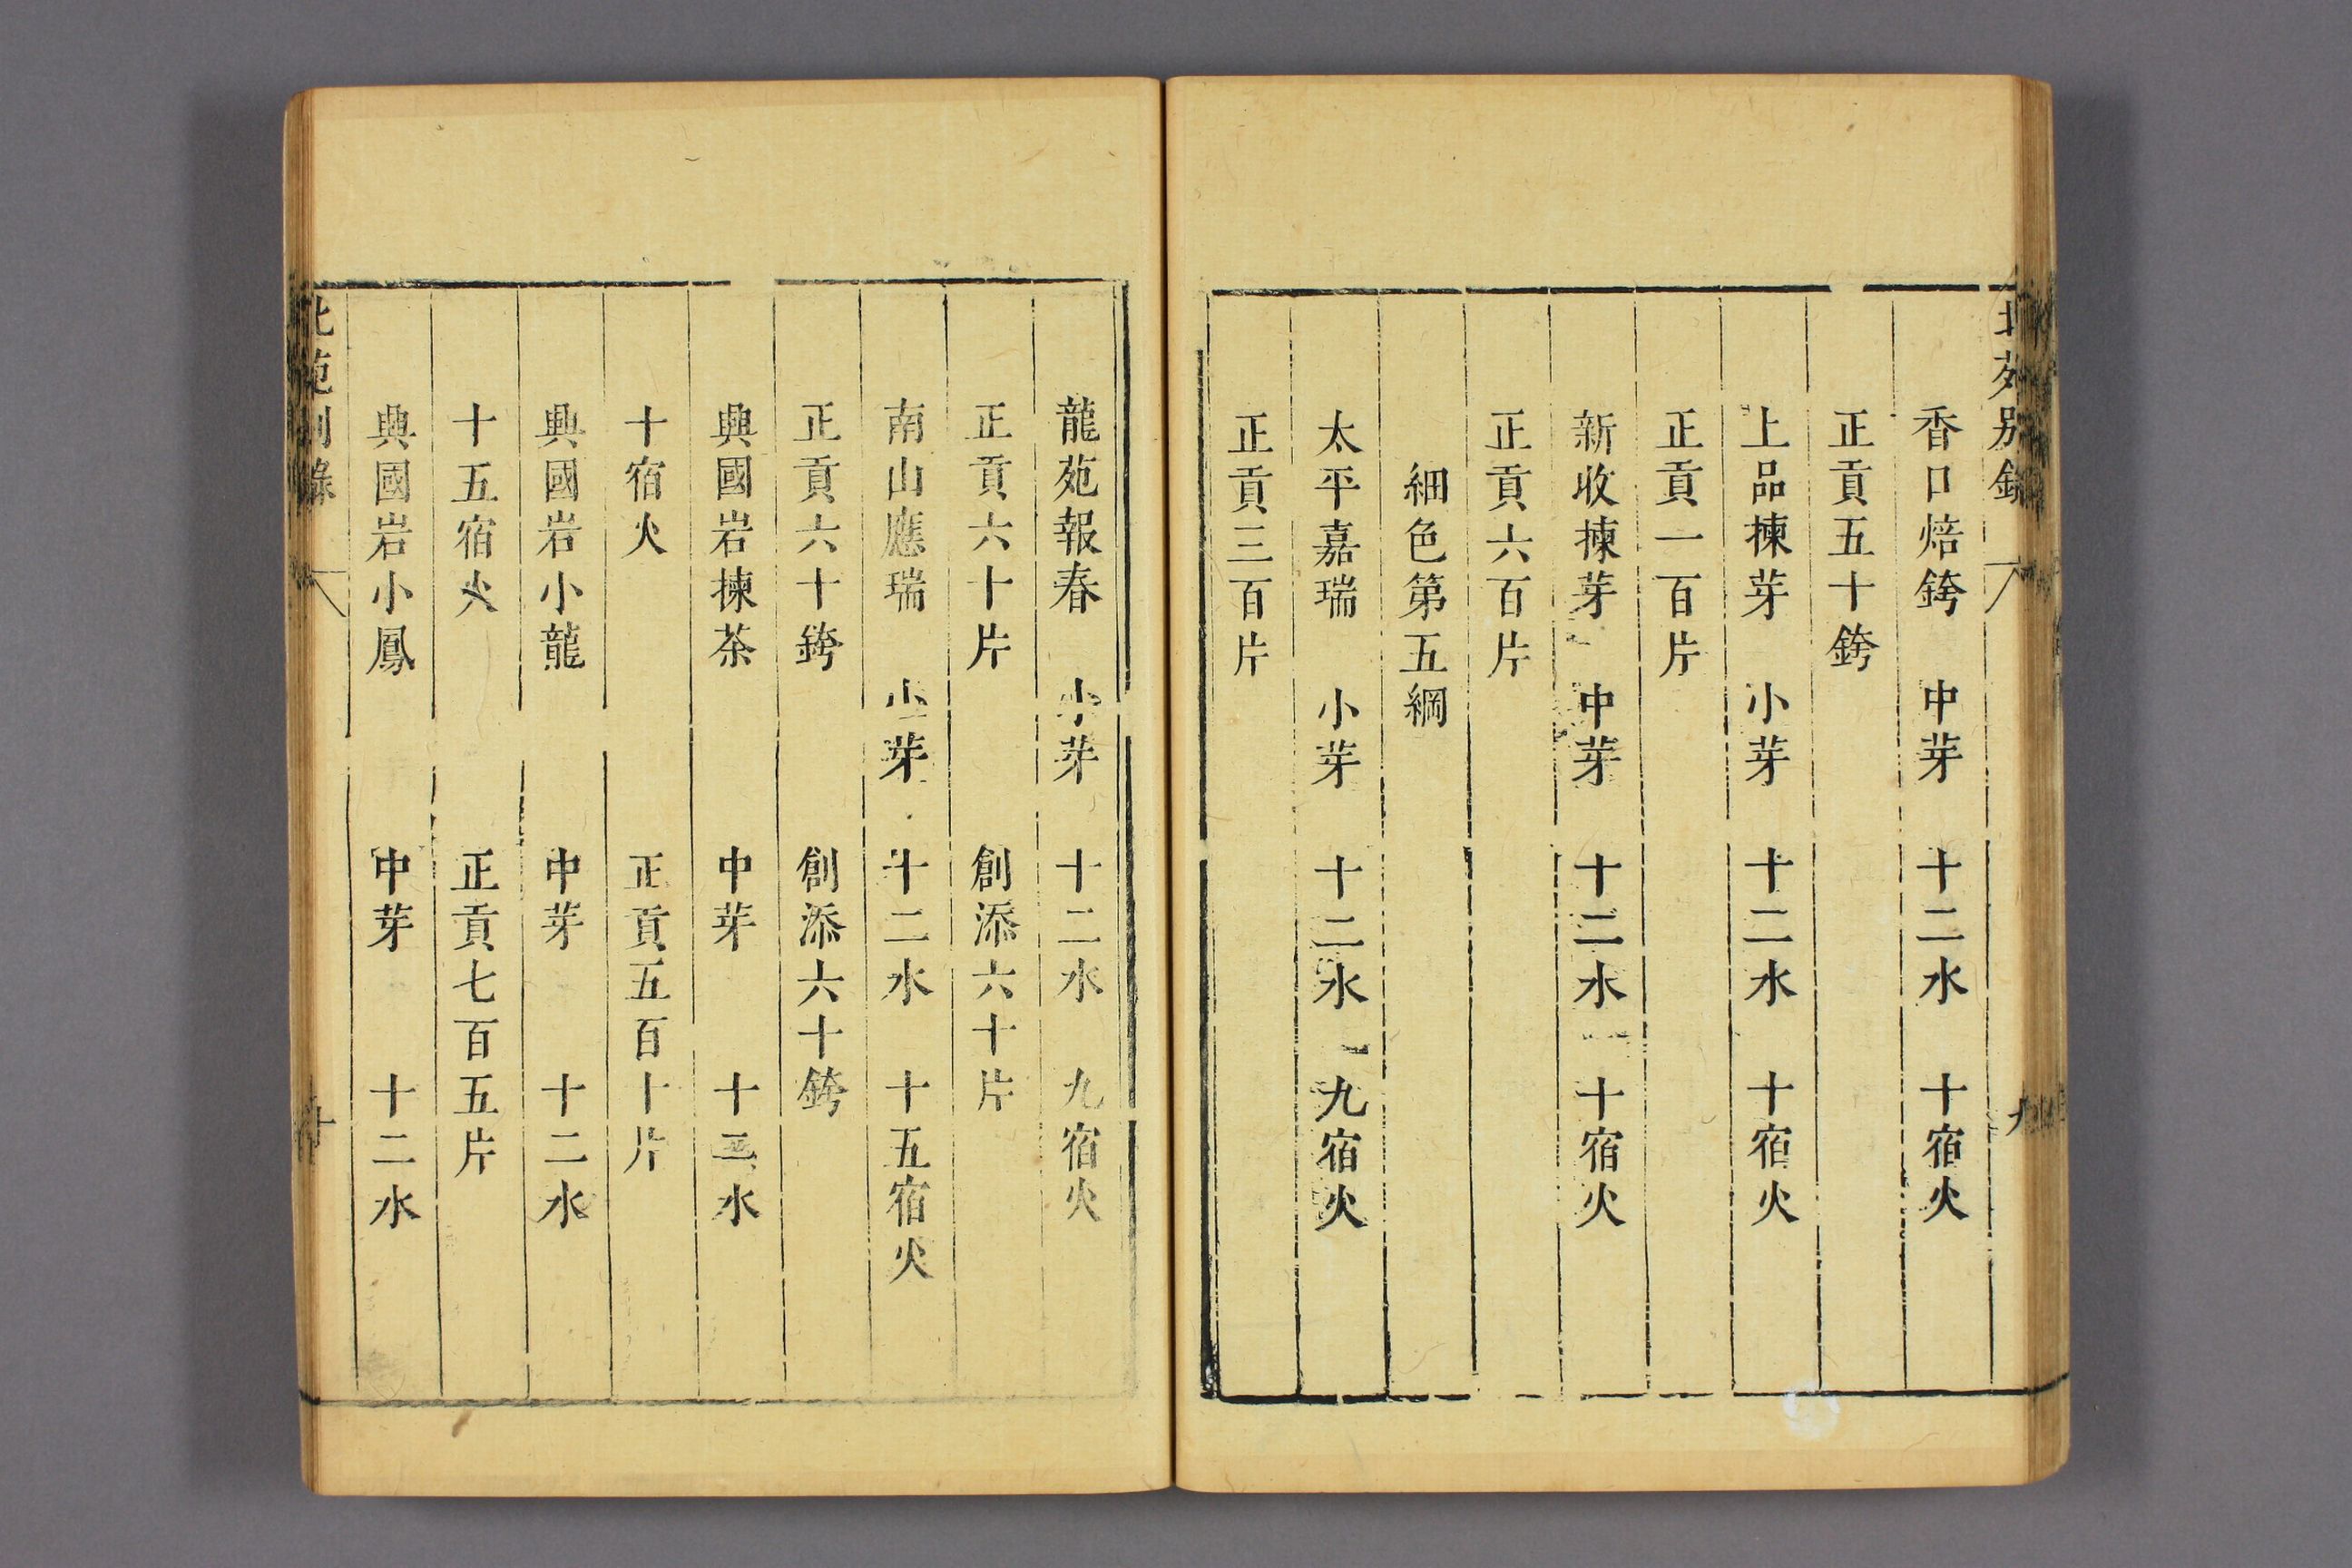 北苑別錄 九
香口焙銙 中芽 十二水 十宿火
正貢五十銙
上品揀芽 小芽 十二水 十宿火
正貢一百片
新收揀芽 中芽 十二水 十宿火
正貢六百片
細色第五綱
太平嘉瑞 小芽 十二水 九宿火
正貢三百片
龍苑報春 小芽 十二水 九宿火
正貢六十片 創添六十片
南山應瑞 小芽 十二水 十五宿火
正貢六十銙 創添六十銙
興國岩揀茶 中芽 十二水
十宿火 正貢五百十片
興國岩小龍 中芽 十二水
十五宿火 正貢七百五片
興國岩小鳳 中芽 十二水
北苑別錄 十